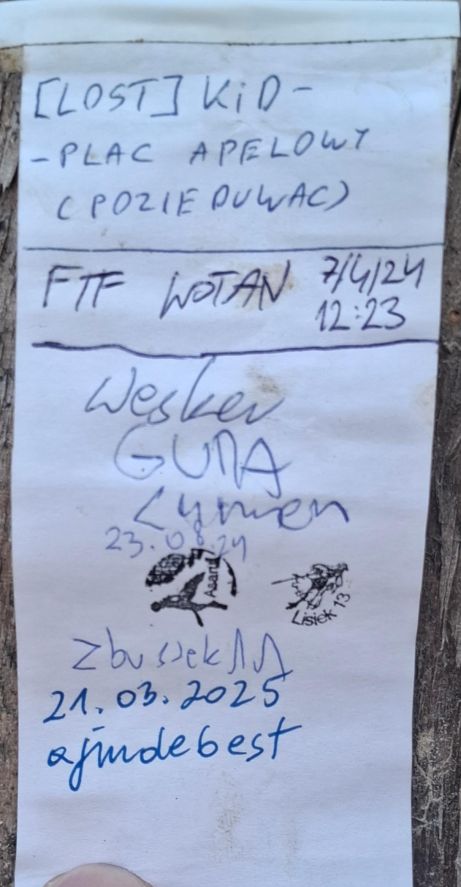 [LOST] KiD -
- PLAC APELOWY
(POZIEDUWAC)
FTF WOTAN 7/4/24
12:23
Wesker
GUMA
Lymen
23.08.24
Aaard
Lisiek 13
21.03.2025
ajmdebest